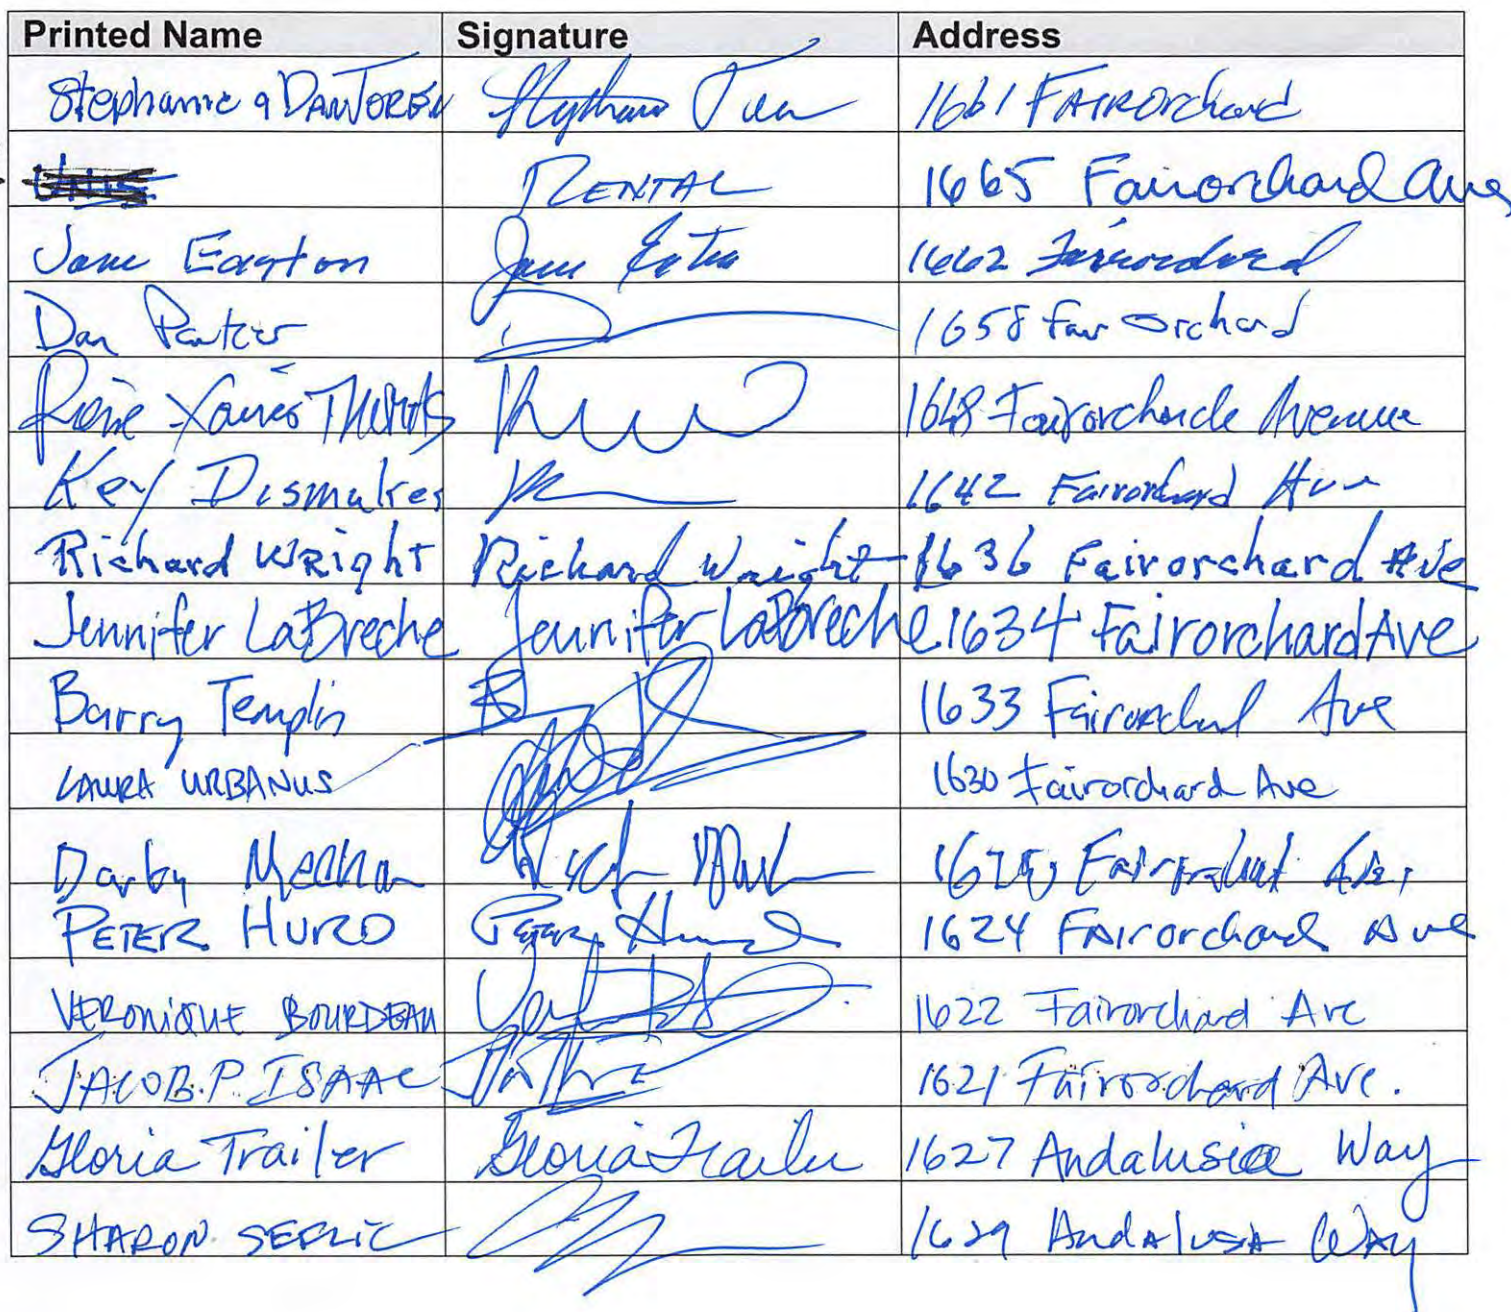 Printed Name Signature Address
Stephanie & Dan Toren 1661 FAIROrchard
RENTAL 1665 Fairorchard Ave
Jane Easton Jane Easton 1662 Fairorchard
Dan Parker 1658 Fair Orchard
Xavier 1648 Fairorchade Avenue
Key Dismukes 1642 Fairorchard Ave
Richard Wright Richard Wright 1636 Fairorchard Ave
Jennifer LaBreche Jennifer LaBreche 1634 Fairorchard Ave
Barry Templin 1633 Fairorchard Ave
LAURA URBANUS 1630 Fairorchard Ave
Darby Fairorchard Ave.
PETER HURD Peter Hurd 1624 FAIrorchard Ave
VERONIQUE BOURDEAU 1622 Fairorchard Ave
JACOB.P. ISAAC 1621 Fairorchard Ave.
Gloria Trailer Gloria Trailer 1627 Andalusia Way
SHARON 1629 Andalusia Way